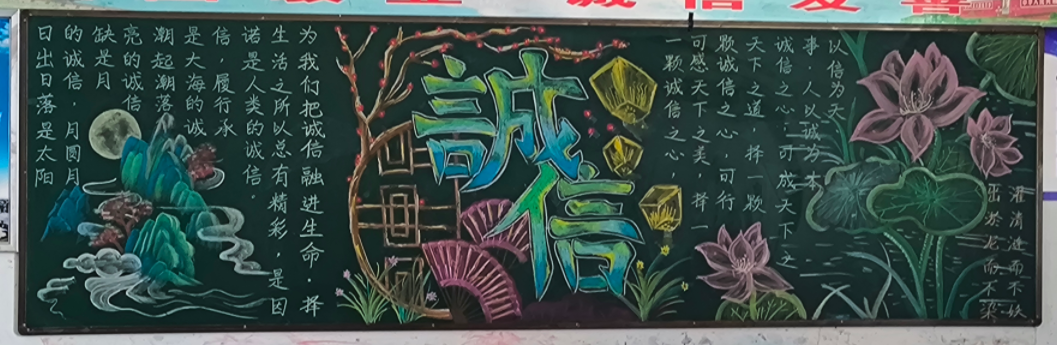 日出日落是太阳
的诚信，月圆月
缺是月
亮的诚信
潮起潮落
是大海的诚
信，履行承
诺是人类的诚信。
生活之所以总有精彩，是因
为我们把诚信融进生命，择
誠信
一颗诚信之心，
可感天下之美，择一
颗诚信之心，可行
天下之道，择一颗
诚信之心，可成天下之
事，人以诚为本
以信为天
出淤泥而不染
濯清涟而不妖